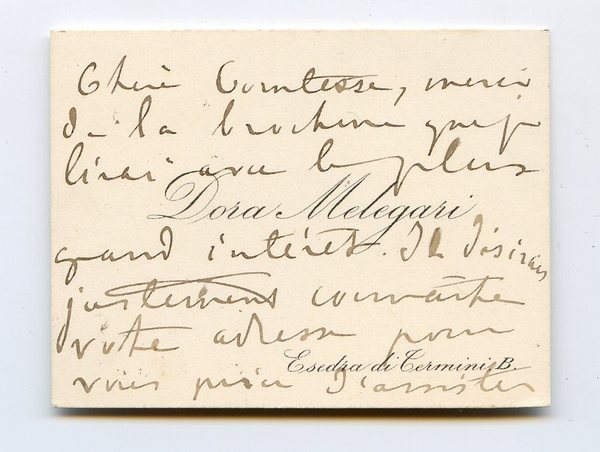 Chère Comtesse, merci
de la brochure que je
lirai avec le plus
Dora Melegari
grand intérêt. Je désirais
justement connaître
votre adresse pour
Esedra di Termini B.
vous prier d'assister